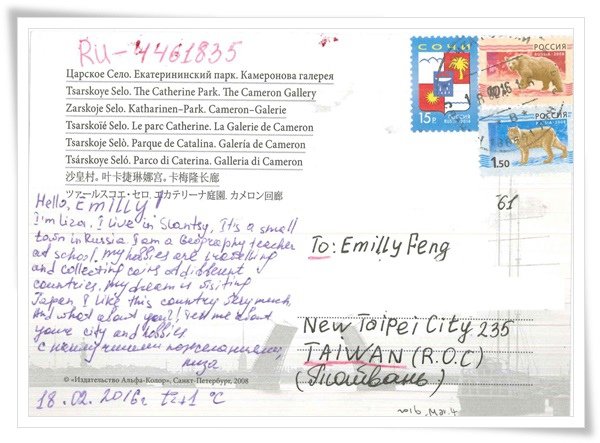 RU-4461835
Царское Село. Екатерининский парк. Камеронова галерея
Tsarskoye Selo. The Catherine Park. The Cameron Gallery
Zarskoje Selo. Katharinen-Park. Cameron-Galerie
Tsarskoïé Selo. Le parc Catherine. La Galerie de Cameron
Tsarskoye Selò. Parque de Catalina. Galería de Cameron
Tsárskoye Selo. Parco di Caterina. Galleria di Cameron
沙皇村。叶卡捷琳娜宫。卡梅隆长廊
ツァールスコエ・セロ。エカテリーナ庭園。カメロン回廊
Hello, Emilly!
I'm Liza. I live in Slantsy, It's a small
town in Russia. I am a Geography teacher
at school. my hobbies are travelling
and collecting coins of different
countries. my dream is visiting
Japan, I like this country very much
And what about you?! Tell me about
your city and hobbies
С наилучшими пожеланиями,
Лиза
© «Издательство Альфа-Колор», Санкт-Петербург, 2008
18.02.2016г t=+1 °C
СОЧИ
15р
РОССИЯ
RUSSIA · 2014
РОССИЯ
RUSSIA · 2008
РОССИЯ
RUSSIA · 2008
1.50
61
To: Emilly Feng
New Taipei City 235
TAIWAN (R.O.C)
(Тайвань)
2016. Mar. 4